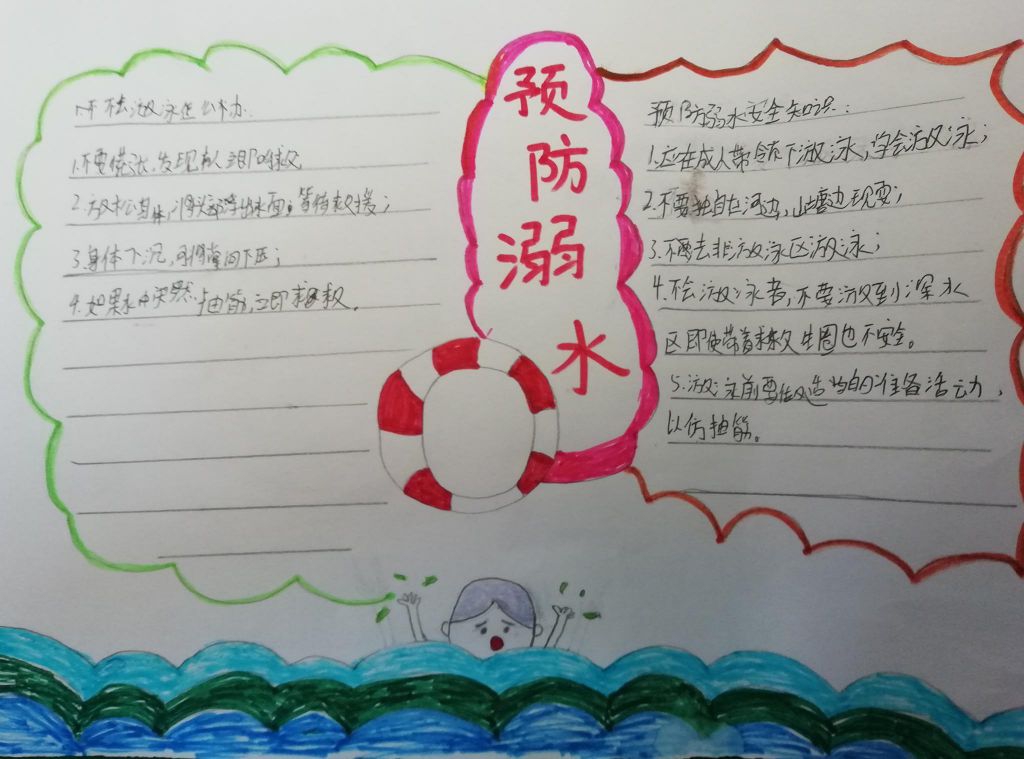 预防溺水
不会游泳怎么办
1.不要慌张,发现有人立即呼救
2.放松身体,将头部浮出水面,等待救援;
3.身体下沉,可将掌向下压;
4.如果水中突然抽筋,立即求救。
预防溺水安全知识:
1.应在成人带领下游泳,学会游泳;
2.不要独自在河边,山塘边玩耍;
3.不要去非游泳区游泳;
4.不会游泳者,不要游到小深水
区即使带着救生圈也不安全。
5.游泳前要做适当的准备活动,
以防抽筋。